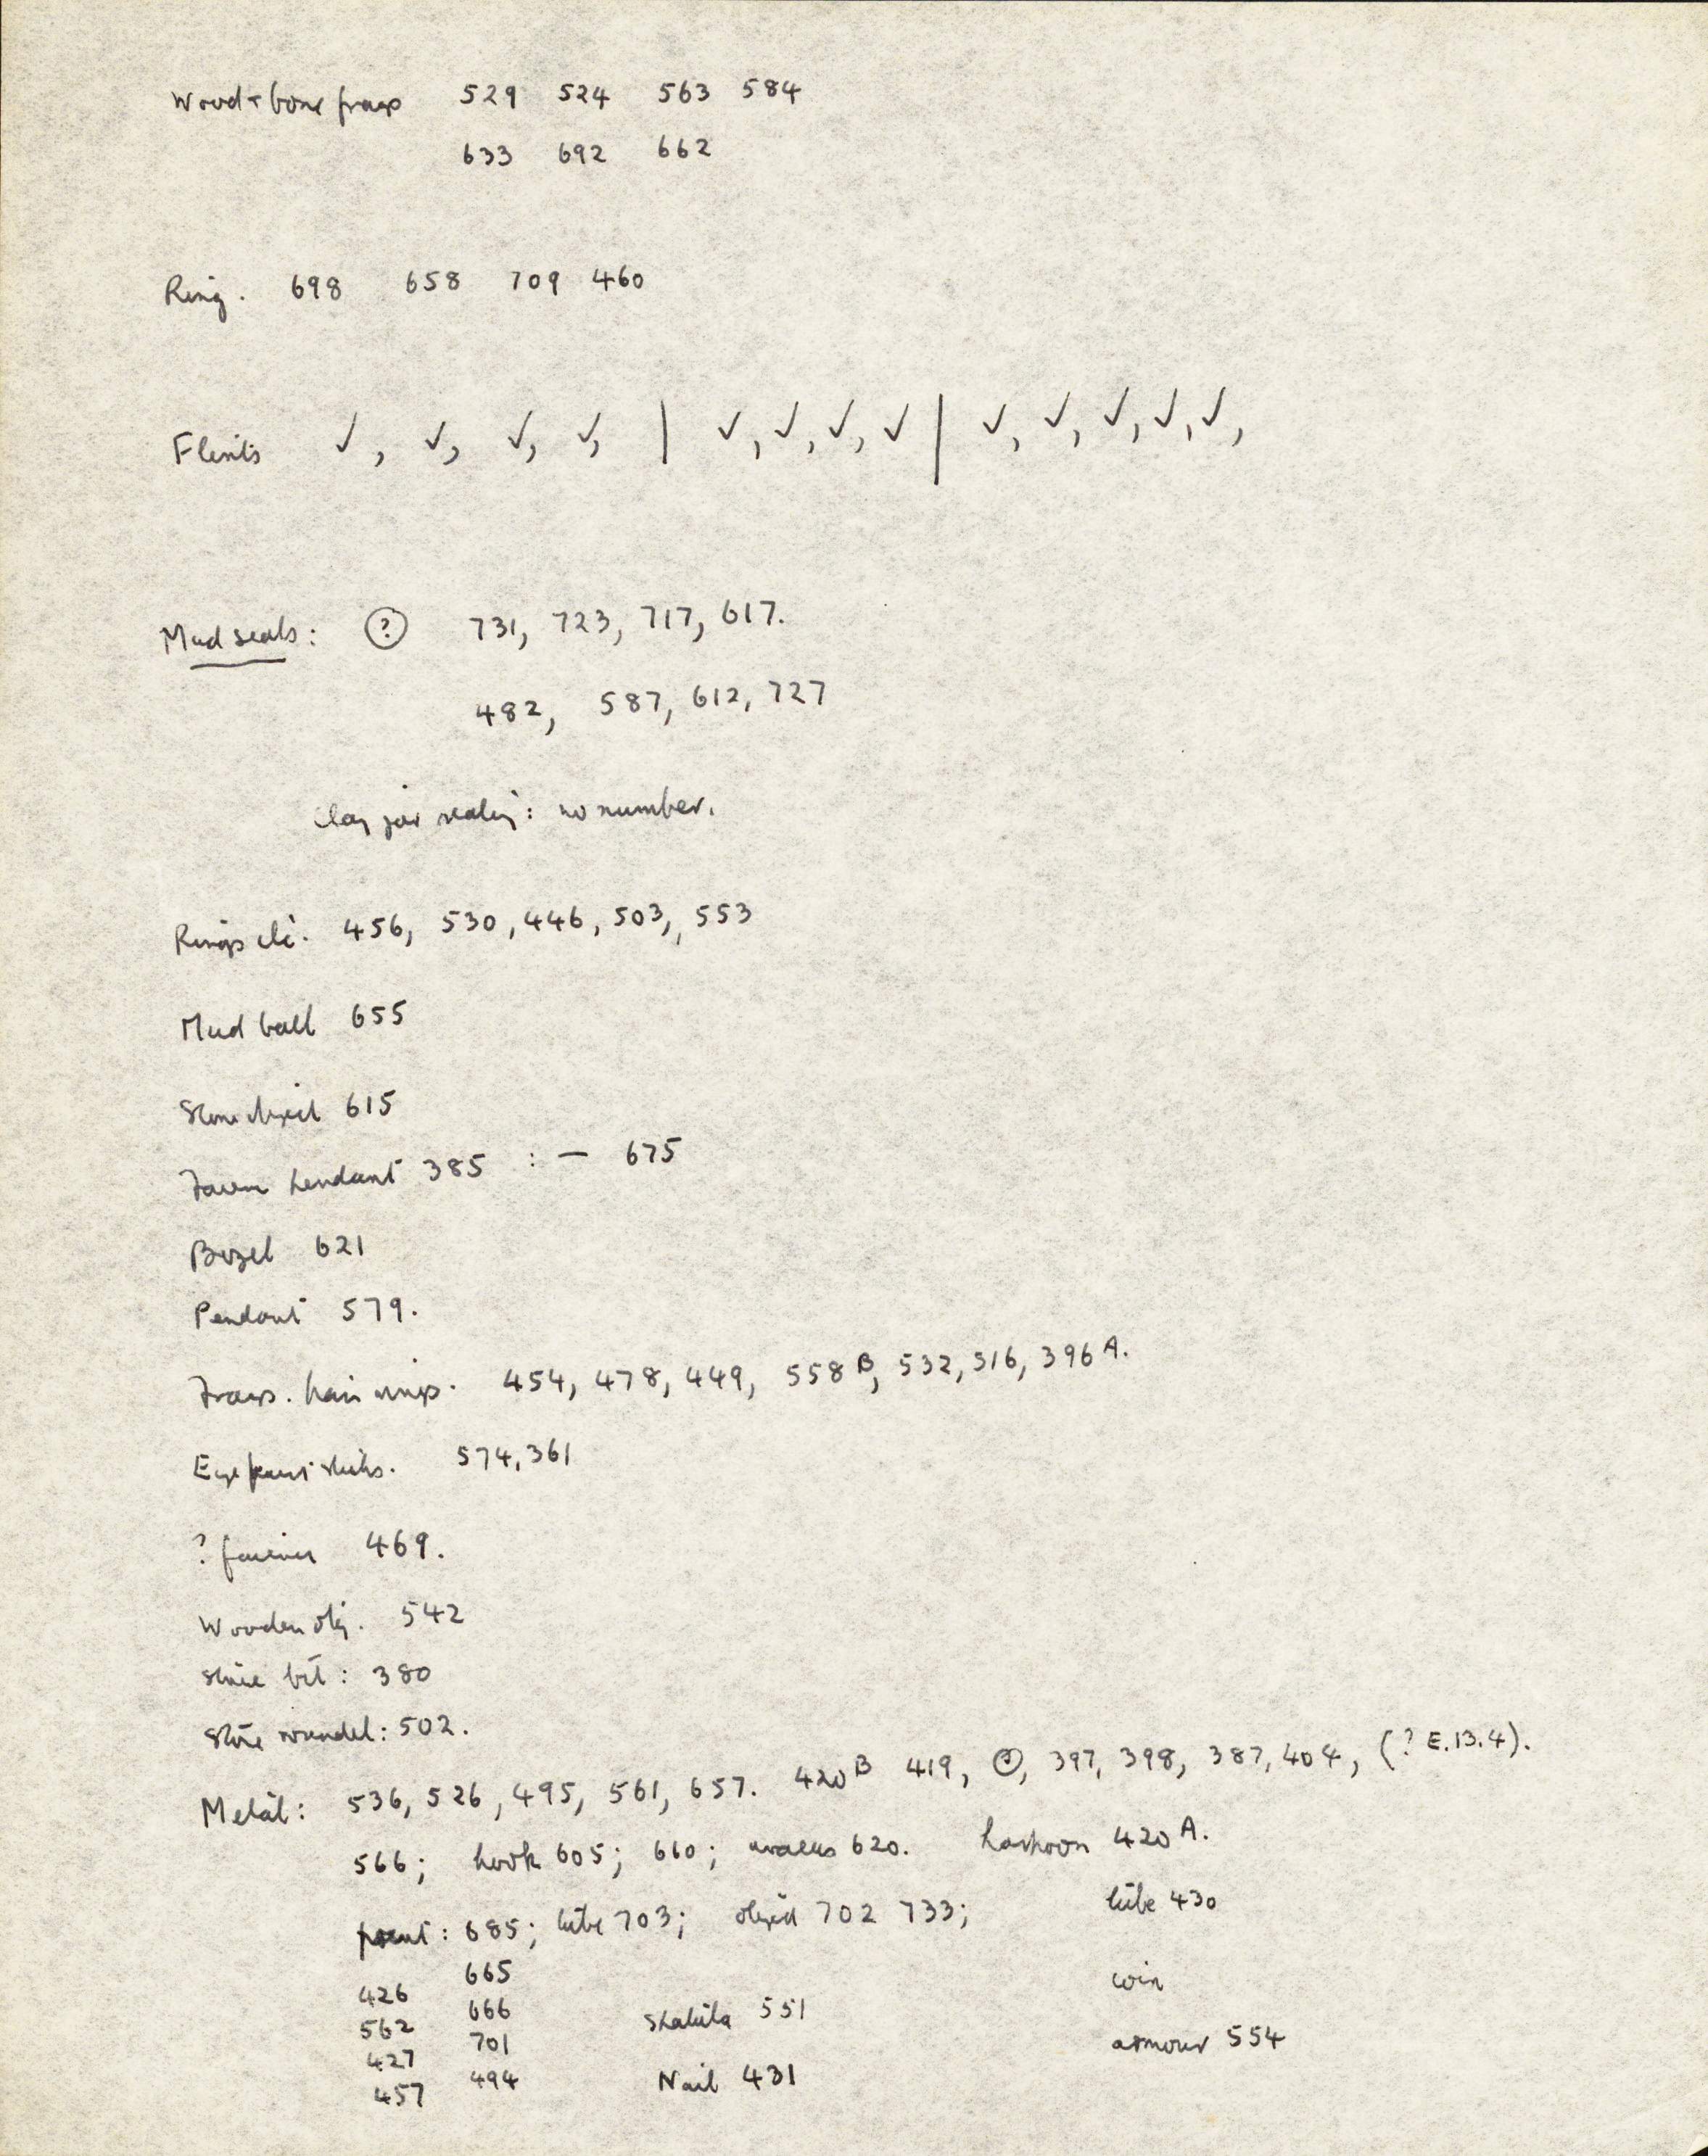 Wood + bone frags 529 524 563 584
633 692 662
Ring. 698 658 709 460
Flints ✓, ✓, ✓, ✓, | ✓, ✓, ✓, ✓ | ✓, ✓, ✓, ✓, ✓,
Mud seals: ? 731, 723, 717, 617.
482, 587, 612, 727
Clay jar sealing: no number.
Rings etc. 456, 530, 446, 503, 553
Mud ball 655
Stone object 615
pendant 385 : — 675
Bezel 621
Pendant 579.
Frags. hair rings. 454, 478, 449, 558B, 532, 516, 396A.
Eye paint sticks. 574, 361
? faience 469.
Wooden obj. 542
Stone bit: 380
Stone roundel: 502.
Metal: 536, 526, 495, 561, 657. 420B 419, ?, 397, 398, 387, 404, (? E.13.4).
566; hook 605; 660; 620. harpoon 420A.
point: 685; tube 703; object 702 733; tube 430
665
426 666 coin
562 701 Spatula 551
427 494 armour 554
457 Nail 431